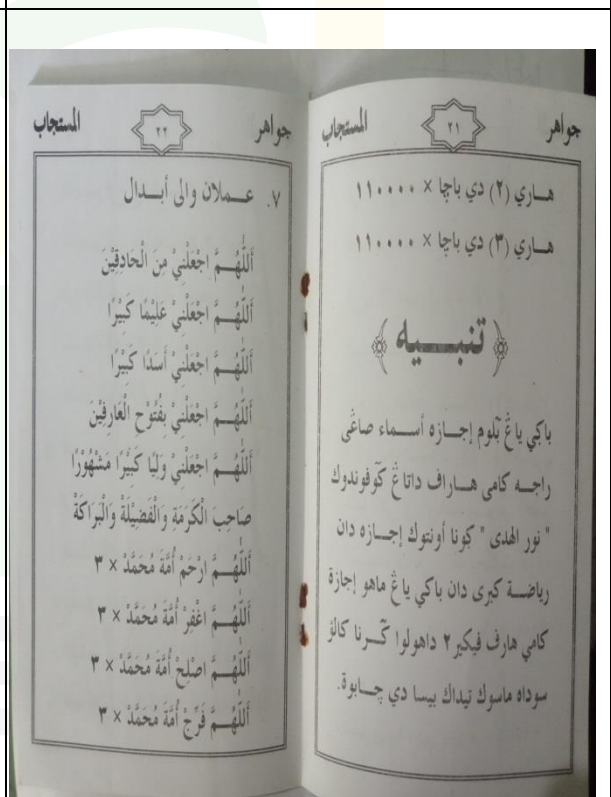 جواهر ٢١ المستجاب
هاري (٢) دي باچا × ١١٠٠٠٠
هاري (٣) دي باچا × ١١٠٠٠٠
﴿ تنبيه ﴾
باكي ياڠ بٓلوم إجازه أسماء صاڠى
راجه كامى هاراف داتاڠ كٓوفوندوك
" نور الهدى " كونا أونتوك إجازه دان
رياضة كبرى دان باكي ياڠ ماهو إجازة
كامي هارف فيكير ٢ داهولوا كٓرنا كالؤ
سوداه ماسوك تيداك بيسا دي چابوة.
جواهر ٢٢ المستجاب
٧. عملان والى أبدال
أَللّٰهُمَّ اجْعَلْنِيْ مِنَ الْحَادِقِيْنَ
أَللّٰهُمَّ اجْعَلْنِيْ عَلِيْمًا كَبِيْرًا
أَللّٰهُمَّ اجْعَلْنِيْ أَسَدًا كَبِيْرًا
أَللّٰهُمَّ اجْعَلْنِيْ بِفُتُوْحِ الْعَارِفِيْنَ
أَللّٰهُمَّ اجْعَلْنِيْ وَلِيًا كَبِيْرًا مَشْهُوْرًا
صَاحِبَ الْكَرَمَةِ وَالْفَضِيْلَةِ وَالْبَرَاكَةْ
أَللّٰهُمَّ ارْحَمْ أُمَّةَ مُحَمَّدْ × ٣
أَللّٰهُمَّ اغْفِرْ أُمَّةَ مُحَمَّدْ × ٣
أَللّٰهُمَّ اصْلِحْ أُمَّةَ مُحَمَّدْ × ٣
أَللّٰهُمَّ فَرِّجْ أُمَّةَ مُحَمَّدْ × ٣